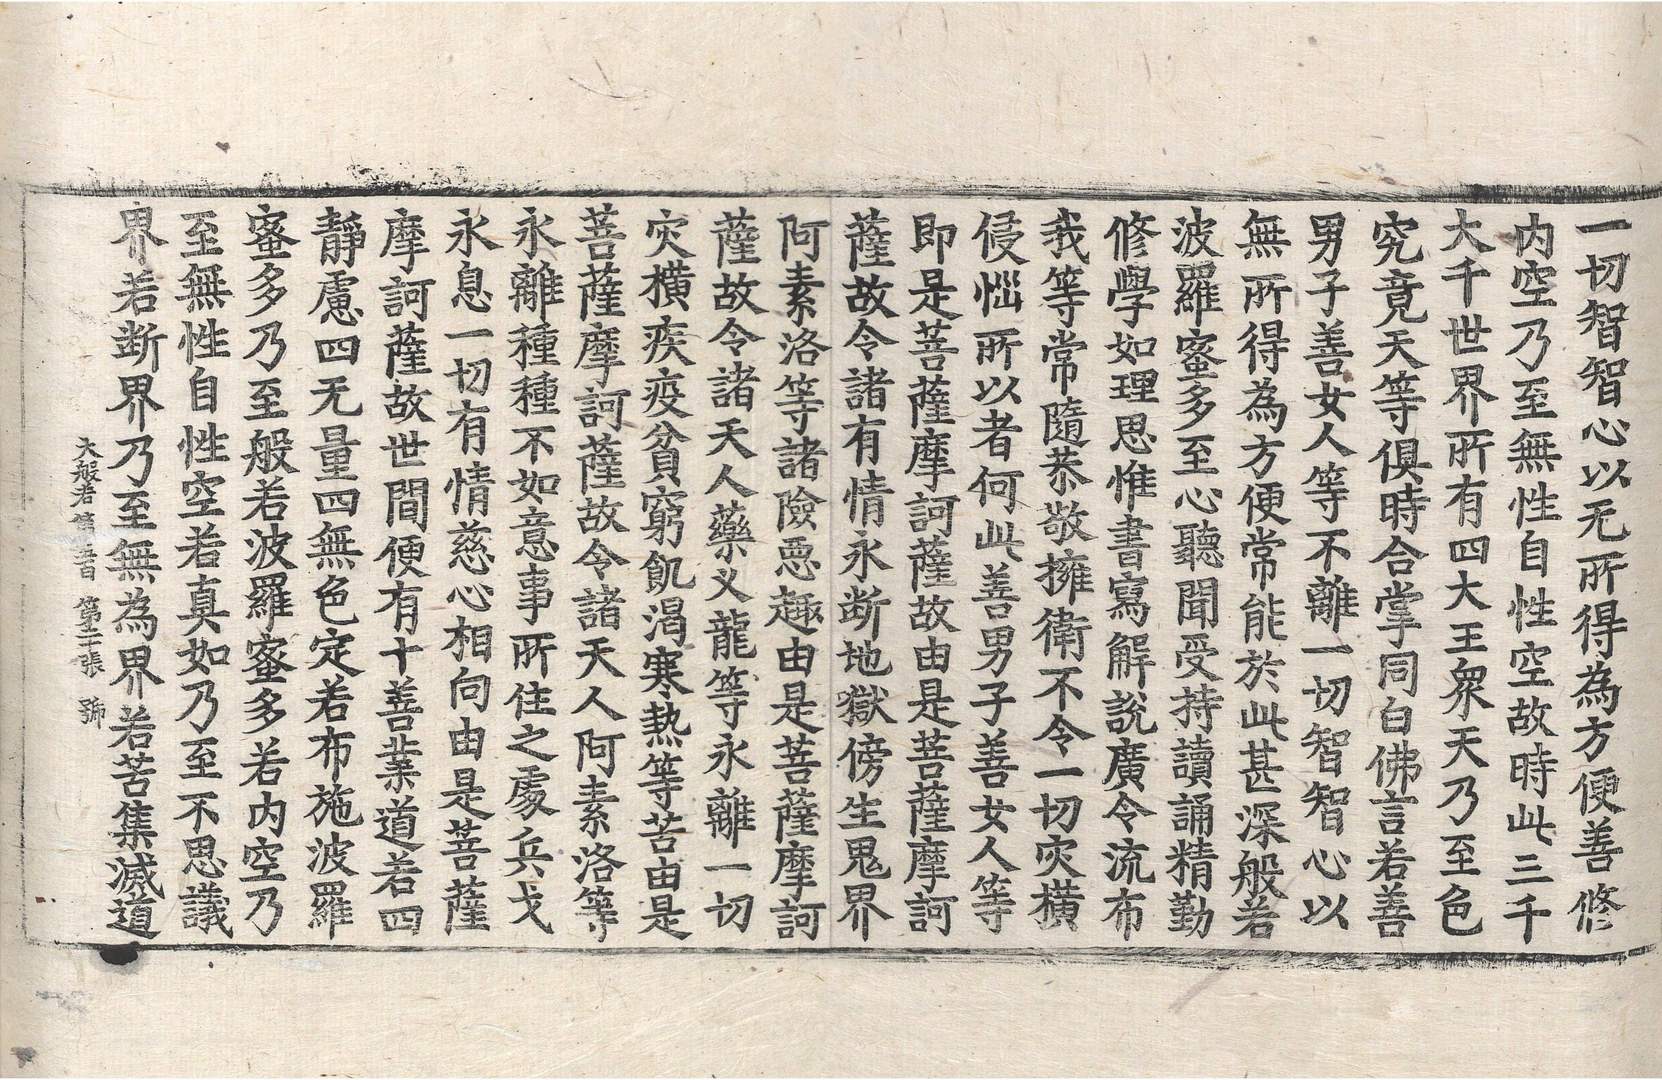 一切智智心以无所得為方便善修
内空乃至無性自性空故時此三千
大千世界所有四大王衆天乃至色
究竟天等俱時合掌同白佛言若善
男子善女人等不離一切智智心以
無所得為方便常能於此甚深般若
波羅蜜多至心聽聞受持讀誦精勤
修學如理思惟書寫解說廣令流布
我等常隨恭敬擁衛不令一切灾横
侵惱所以者何此善男子善女人等
即是菩薩摩訶薩故由是菩薩摩訶
薩故令諸有情永断地獄傍生鬼界
阿素洛等諸險惡趣由是菩薩摩訶
薩故令諸天人藥叉龍等永離一切
灾横疾疫貧窮飢渴寒熱等苦由是
菩薩摩訶薩故令諸天人阿素洛等
永離種種不如意事所住之處兵戈
永息一切有情慈心相向由是菩薩
摩訶薩故世間便有十善業道若四
靜慮四无量四無色定若布施波羅
蜜多乃至般若波羅蜜多若内空乃
至無性自性空若真如乃至不思議
界若断界乃至無為界若苦集滅道
大般若第五百 第二張 號